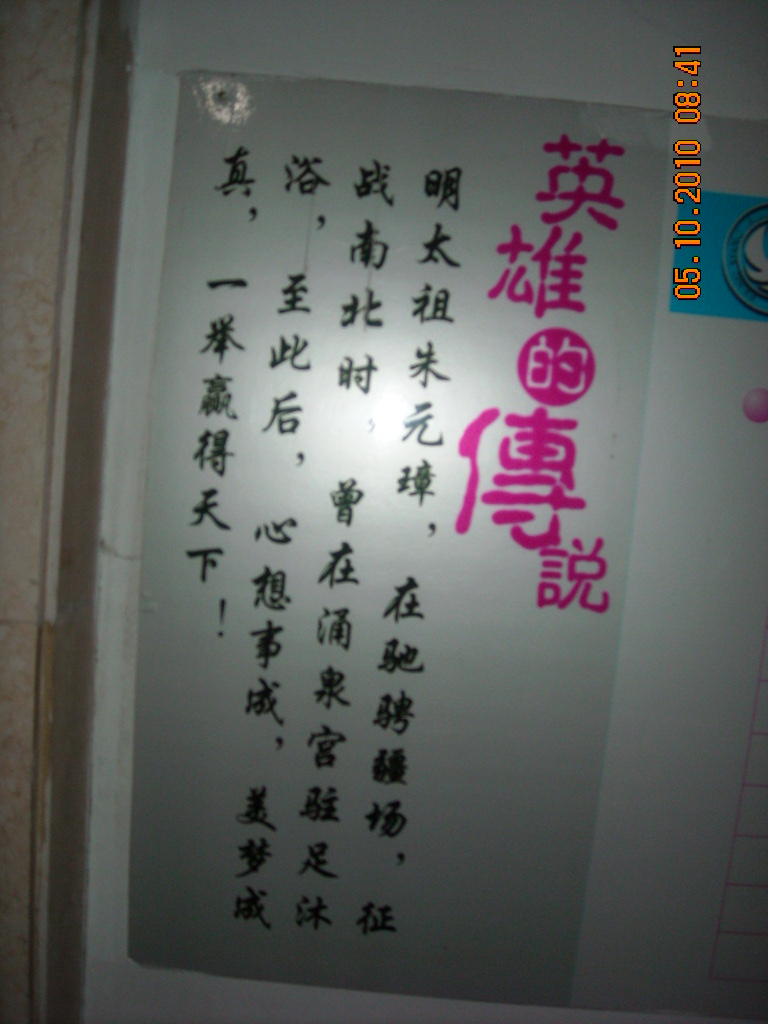 英雄的傳説
明太祖朱元璋，在驰骋疆场，征
战南北时，曾在涌泉宫驻足沐
浴，至此后，心想事成，美梦成
真，一举赢得天下！
05.10.2010 08:41